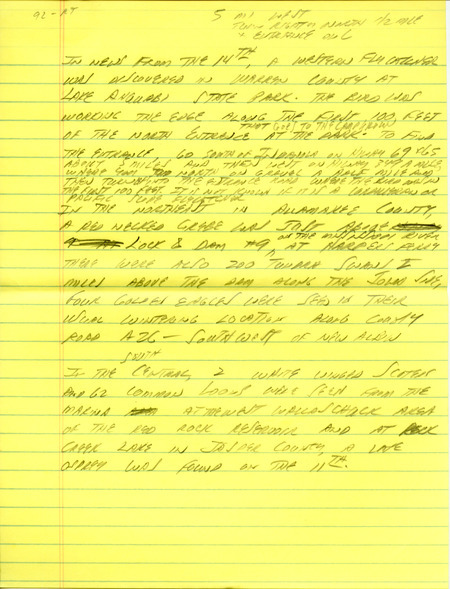 92-AT
5 mi West
Turn Right North 1/2 mile
Entrance on L
In news from the 14th, a western flycatcher
was discovered in Warren County at
Lake Ahquabi State Park. The bird was
working the edge along the first 100 feet
of the north entrance that goes to the campground at the park. To find
the entrance go south of Indianola on Hiway 69 & 65
about 5 miles and then west on Hiway 349 a mile
where you north on gravel a half mile and
then turn into the entrance road where the bird was in
the first 100 feet. It is not known if it is a Cordilleran or
Pacific Slope Flycatcher
In the northeast in Allamakee County,
a red necked grebe was just above
Lock & Dam #9 on the Mississippi River at Harpers Ferry
There were also 200 tundra swans 2
miles above the dam along the Iowa side,
Four golden eagles were seen in their
usual wintering location along County
Road A26 - southwest of New Albin
In the South Central, 2 white winged scoters
and 62 common loons were seen from the
marina at the west Wallashuck area
of the Red Rock Reservoir and at Rock
Creek Lake in Jasper County, a late
osprey was found on the 11th.